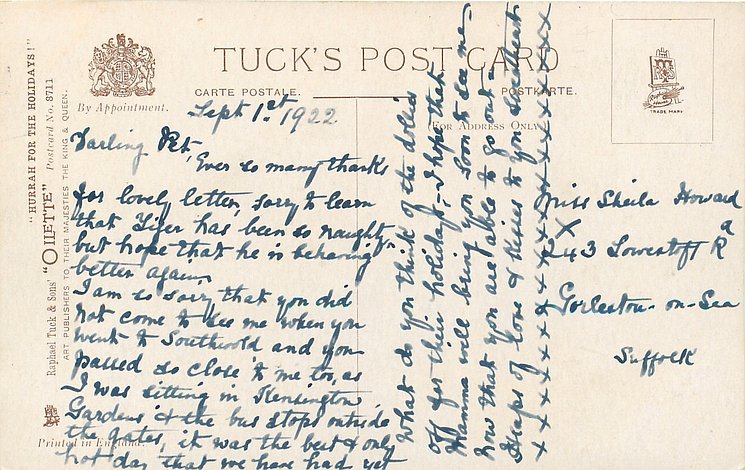 "HURRAH FOR THE HOLIDAYS!"
Raphael Tuck & Sons' "OILETTE" Postcard No. 8711
ART PUBLISHERS TO THEIR MAJESTIES THE KING & QUEEN.
By Appointment.
TUCK'S POST CARD
CARTE POSTALE.
POSTKARTE.
(FOR ADDRESS ONLY)
TRADE MARK
Sept 1st 1922
Darling Pet,
Ever so many thanks
for lovely letter, sorry to learn
that Tiger has been so naughty
but hope that he is behaving
better again,
I am so sorry that you did
not come to see me when you
went to Southwold and you
passed so close to me too, as
I was sitting in Kensington
Gardens & the bus stops outside
the gates, it was the best & only
hot day that we have had yet
What do you think of the dollies
off for their holidays, I hope that
Mamma will bring you soon to see me
now that you are able to go out
Heaps of love & kisses to you dearheart
x x x x x x x x x x x x x x x x x x x x
x
Miss Sheila Howard
243 Lowestoft Rd
Gorleston-on-Sea
Suffolk
Printed in England.